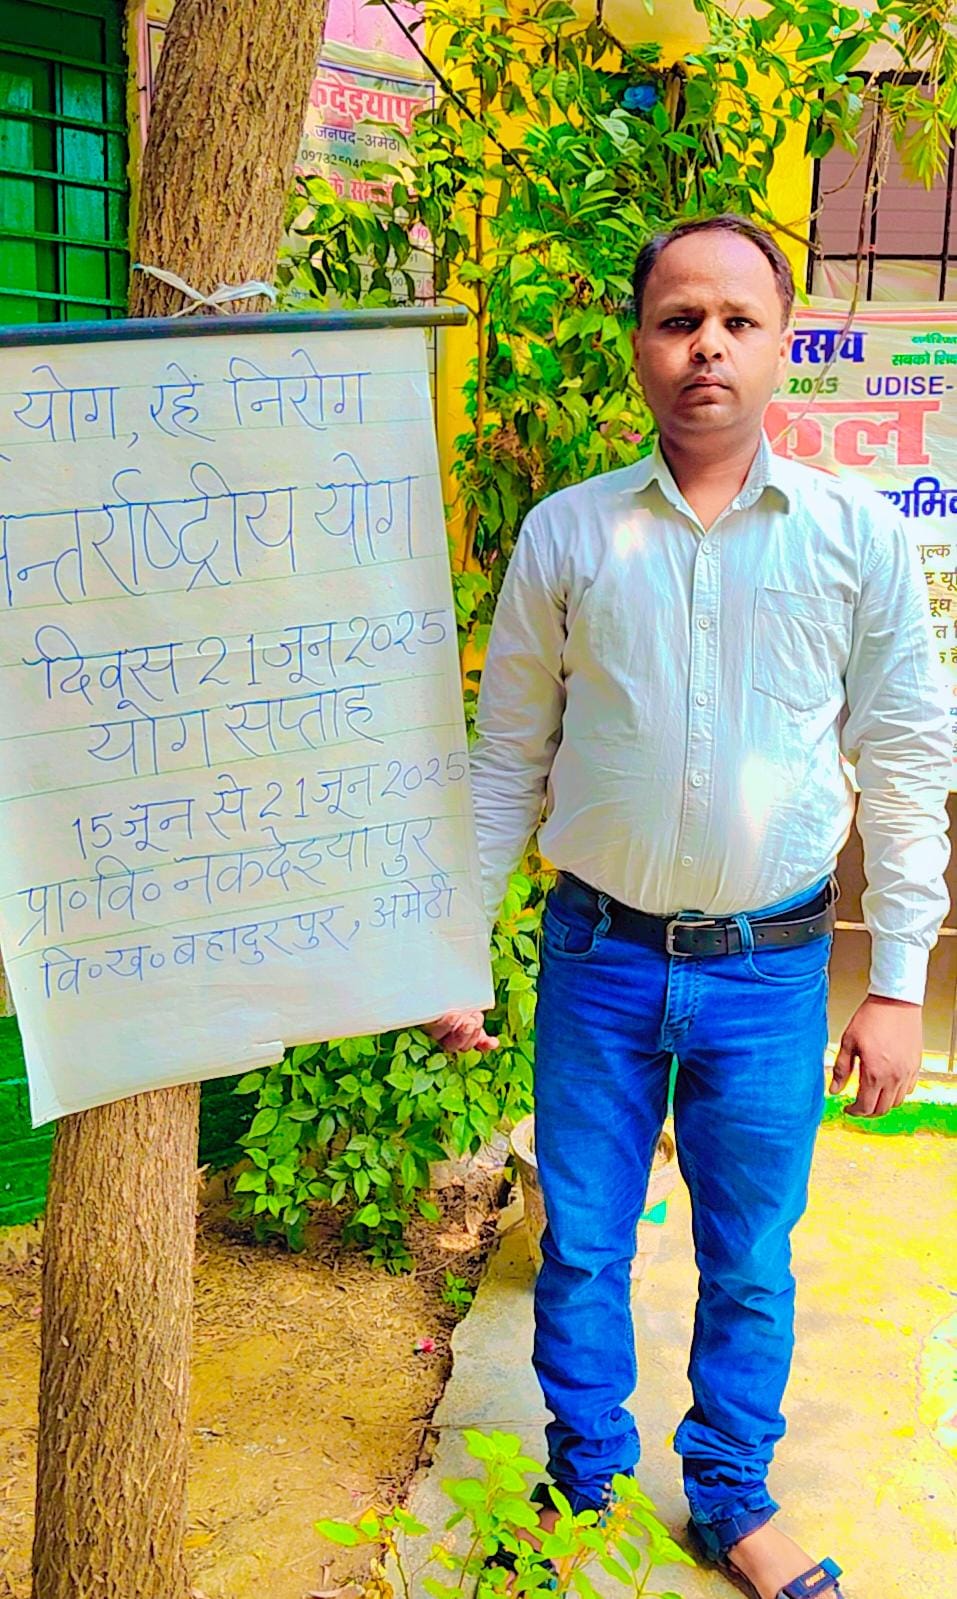 योग, रहें निरोग
न्तर्राष्ट्रीय योग
दिवस 21 जून 2025
योग सप्ताह
15 जून से 21 जून 2025
प्रा०वि० नकदेइयापुर
वि०ख० बहादुरपुर, अमेठी
कदेइयापु
जनपद-अमेठी
त्सव
सबको शि
2025 UDISE-
कूल
थमिक
ुल्क
दूध